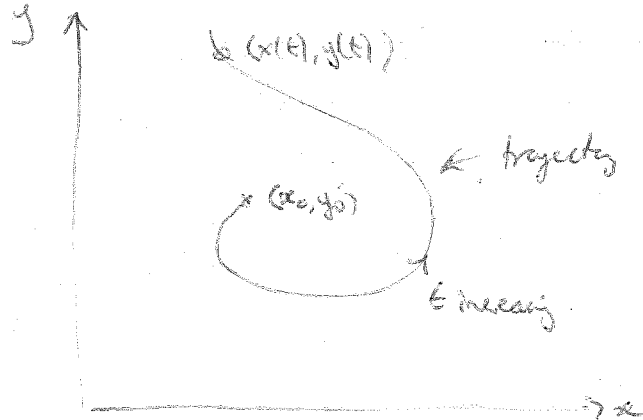 y
(x(t), y(t))
← trajectory
(x₀, y₀)
t increasing
x